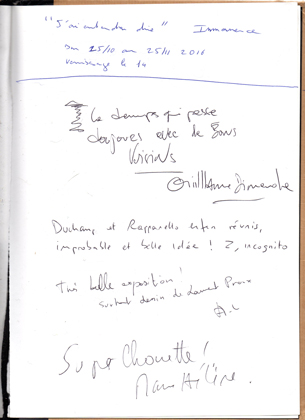 "J'ai entendu dire" Immanence
Du 25/10 au 25/11 2011
vernissage le 14
Le temps qui passe
toujours avec de bons
voisins
Guillaume Dimanche
Duchamp et Rapparello enfin réunis,
improbable et belle idée ! Z, incognito
Très belle exposition !
surtout dessin de Laurent Prou
A.L
Super Chouette !
Marie Hélène.